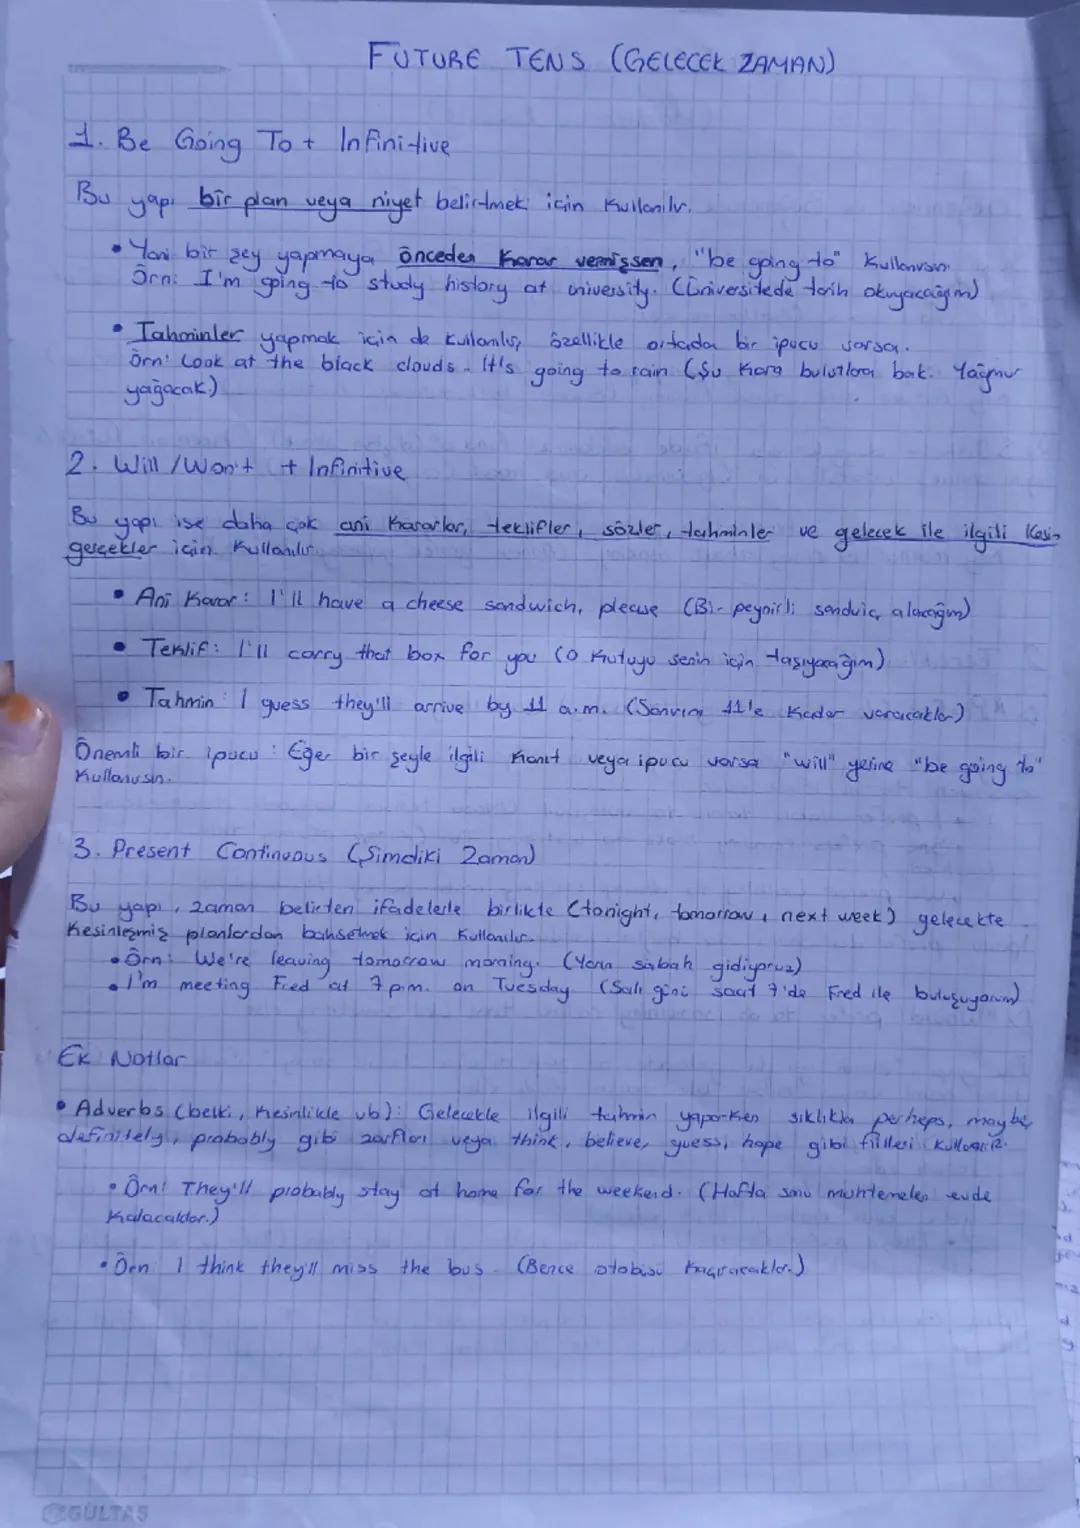 FUTURE TENS (GELECEK ZAMAN)
1. Be Going To + Infinitive
Bu yapı bir plan veya niyet belirtmek için kullanılır.
• Yani bir şey yapmaya önceden karar vermişsen, "be going to" kullanırsın.
Örn: I'm going to study history at university. (Üniversitede tarih okuyacağım)
• Tahminler yapmak için de kullanılır, özellikle ortada bir ipucu varsa.
Örn: Look at the black clouds. It's going to rain (Şu kara bulutlara bak. Yağmur
yağacak.)
2. Will / Won't + Infinitive
Bu yapı ise daha çok ani kararlar, teklifler, sözler, tahminler ve gelecek ile ilgili kesin
gerçekler için kullanılır
• Ani Karar: I'll have a cheese sandwich, please (Bir peynirli sandviç alacağım)
• Teklif: I'll carry that box for you (O kutuyu senin için taşıyacağım)
• Tahmin: I guess they'll arrive by 11 a.m. (Sanırım 11'e kadar varacaklar)
Önemli bir ipucu: Eğer bir şeyle ilgili kanıt veya ipucu varsa "will" yerine "be going to"
kullanırsın.
3. Present Continuous (Şimdiki Zaman)
Bu yapı, zaman belirten ifadelerle birlikte (tonight, tomorrow, next week) gelecekte
kesinleşmiş planlardan bahsetmek için kullanılır.
• Örn: We're leaving tomorrow morning. (Yarın sabah gidiyoruz)
• I'm meeting Fred at 7 p.m. on Tuesday (Salı günü saat 7'de Fred ile buluşuyorum)
Ek Notlar
• Adverbs (belki, kesinlikle vb): Gelecekle ilgili tahmin yaparken sıklıkla perheps, maybe,
definitely, probably gibi zarfları veya think, believe, guess, hope gibi fiilleri kullanırız.
• Örn: They'll probably stay at home for the weekend. (Hafta sonu muhtemelen evde
kalacaklar.)
• Örn I think they'll miss the bus. (Bence otobüsü kaçıracaklar.)
GÜLTAŞ